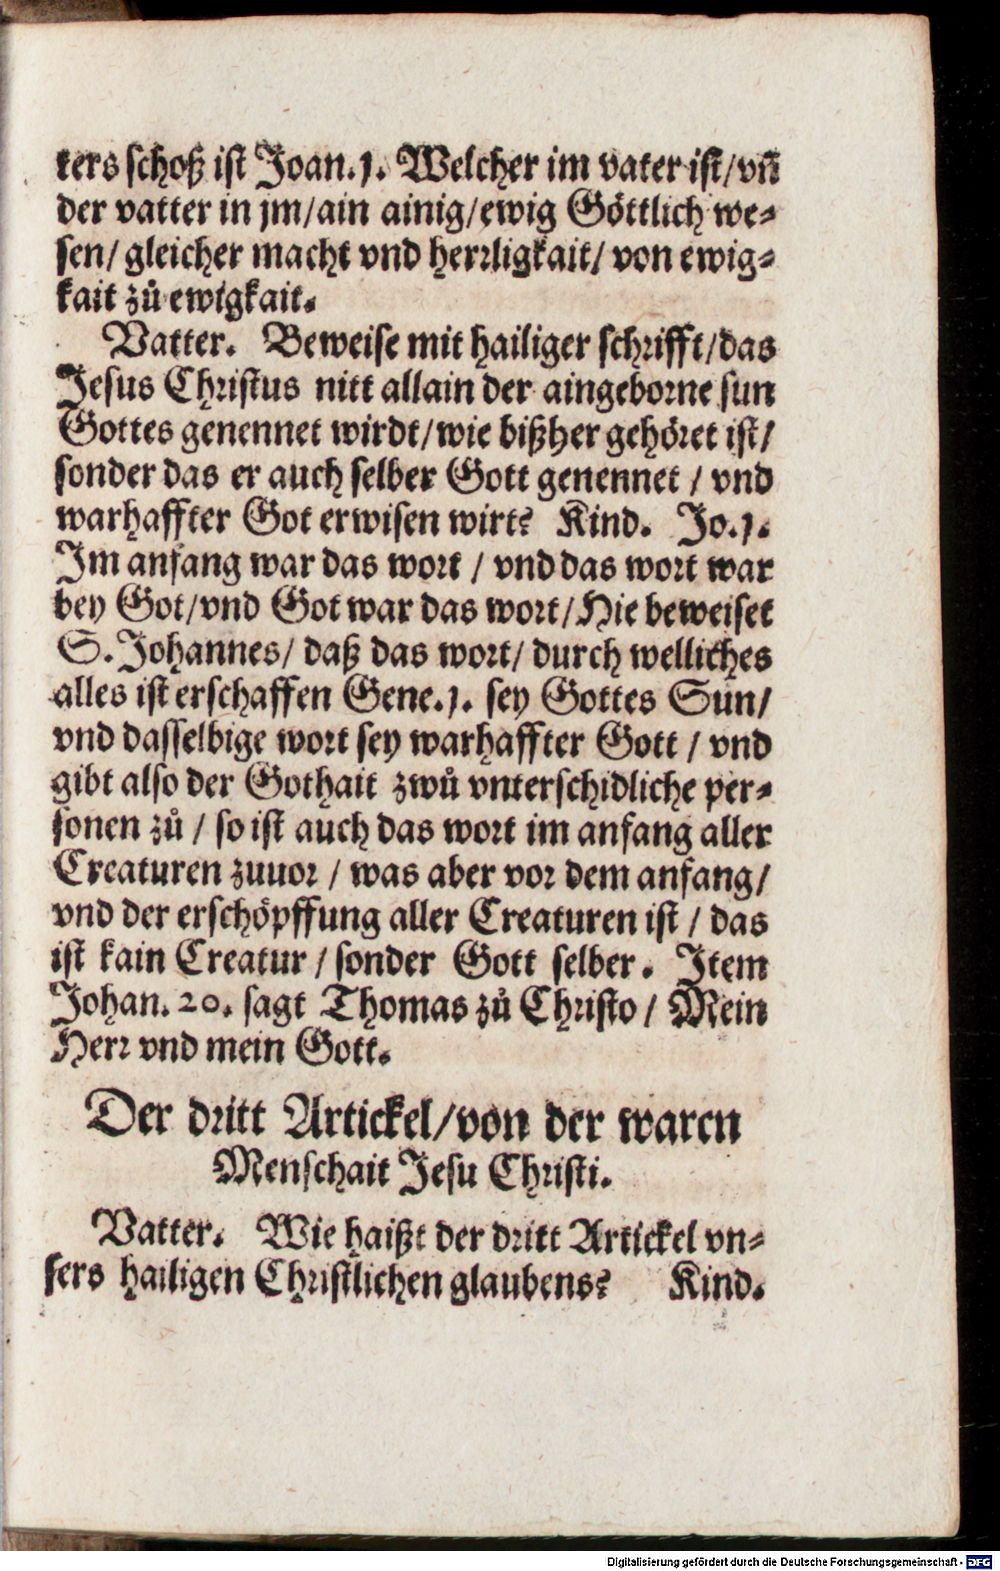 ters schoß ist Joan.1. Welcher im vater ist/vñ
der vatter in jm/ain ainig/ewig Göttlich we⸗
sen/ gleicher macht vnd herrligkait/ von ewig⸗
kait zů ewigkait.
Vatter. Beweise mit hailiger schrifft/das
Jesus Christus nitt allain der aingeborne sun
Gottes genennet wirdt/wie bißher gehöret ist/
sonder das er auch selber Gott genennet / vnd
warhaffter Got erwisen wirt? Kind. Jo.1.
Im anfang war das wort / vnd das wort war
bey Got/vnd Got war das wort/Hie beweiset
S. Johannes/ daß das wort/ durch welliches
alles ist erschaffen Gene.1. sey Gottes Sun/
vnd dasselbige wort sey warhaffter Gott / vnd
gibt also der Gothait zwů vnterschidliche per⸗
sonen zů / so ist auch das wort im anfang aller
Creaturen zuuor / was aber vor dem anfang/
vnd der erschöpffung aller Creaturen ist / das
ist kain Creatur / sonder Gott selber. Item
Johan. 20. sagt Thomas zů Christo / Mein
Herr vnd mein Gott.
Der dritt Artickel/von der waren
Menschait Jesu Christi.
Vatter. Wie haißt der dritt Artickel vn⸗
sers hailigen Christlichen glaubens? Kind.
Digitalisierung gefördert durch die Deutsche Forschungsgemeinschaft - DFG